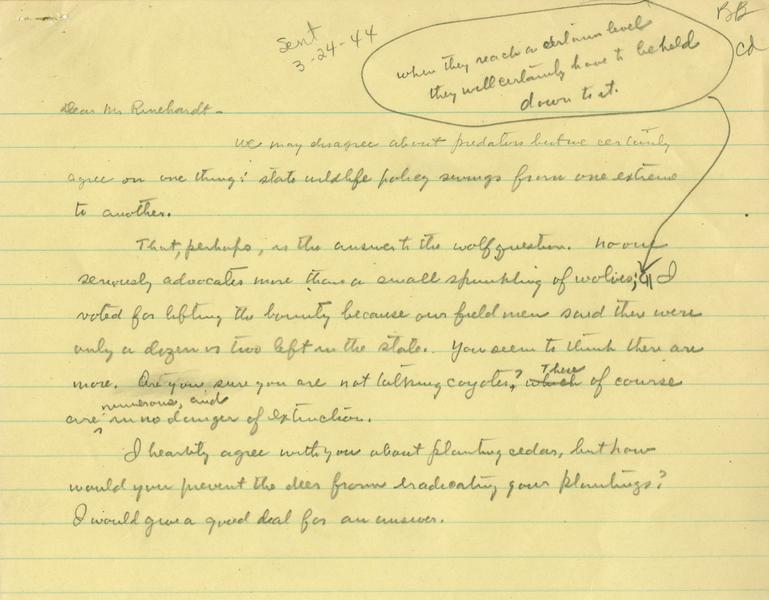 BB
cd
Sent
3-24-44
when they reach a certain level
they will certainly have to be held
down to it.
Dear Mr Rinehardt -
We may disagree about predators but we certainly
agree on one thing: state wildlife policy swings from one extreme
to another.
That, perhaps, is the answer to the wolf question. No one
seriously advocates more than a small sprinkling of wolves; ¶ I
voted for lifting the bounty because our field men said there were
only a dozen or two left in the state. You seem to think there are
more. Are you sure you are not talking coyotes? which These of course
are numerous, and in no danger of extinction.
I heartily agree with you about planting cedar, but how
would you prevent the deer from eradicating your plantings?
I would give a good deal for an answer.